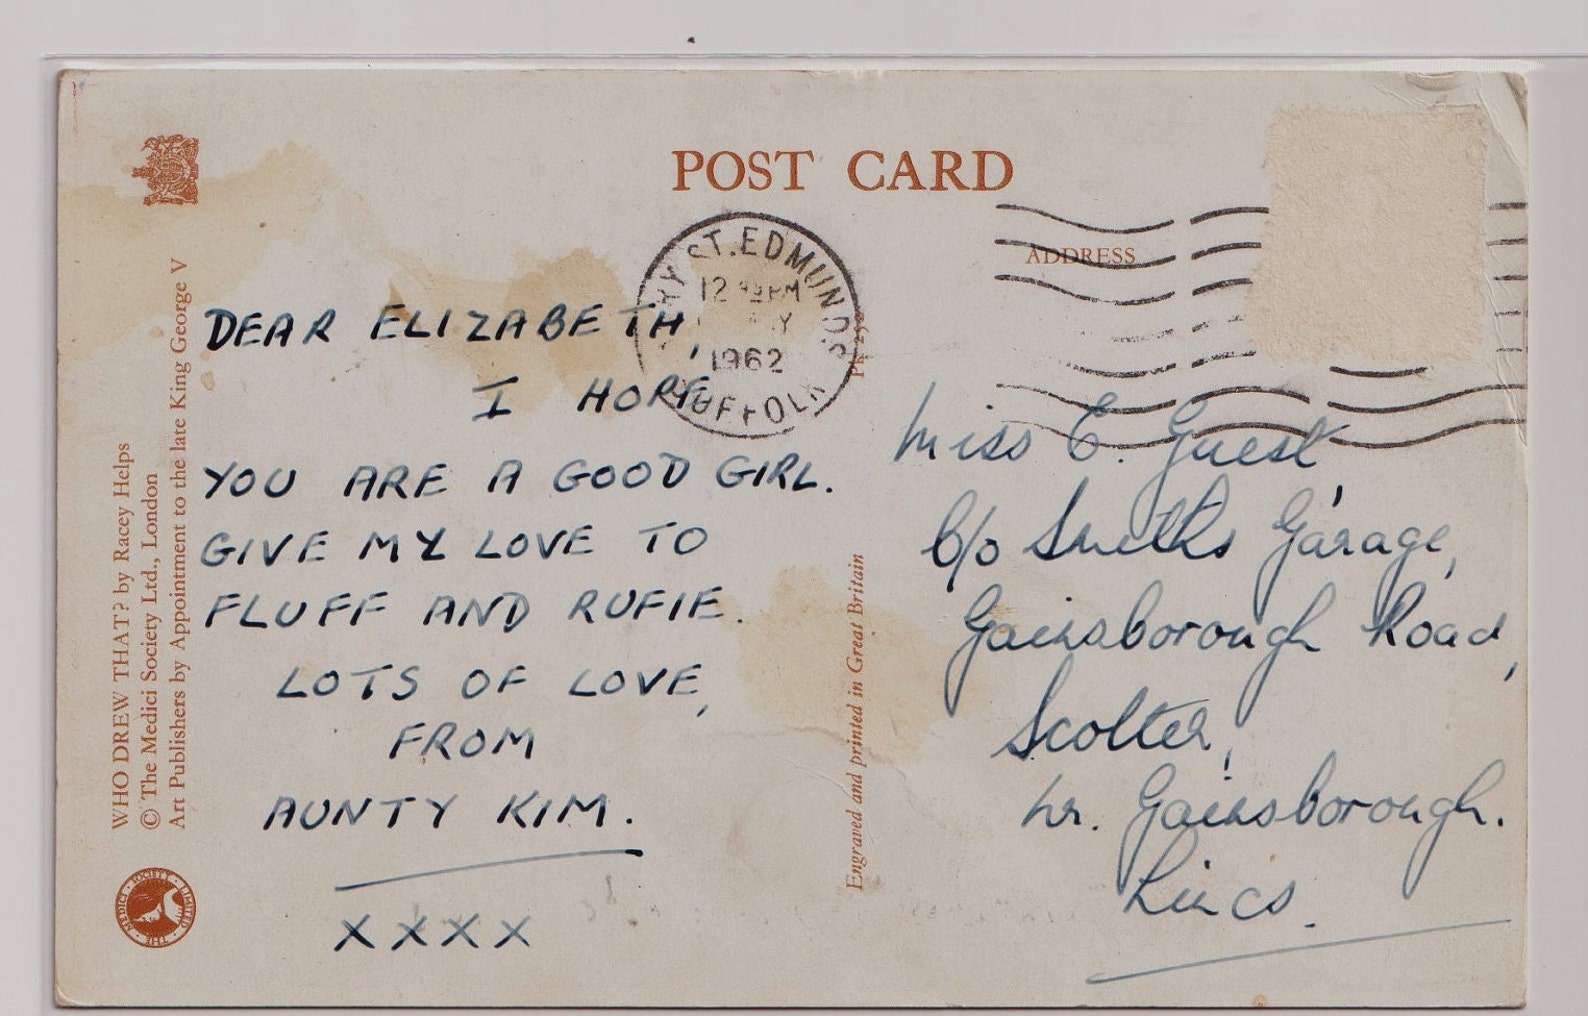 POST CARD
ADDRESS
ST. EDMUNDS
12 PM
1962
SUFFOLK
DEAR ELIZABETH,
I HOPE
YOU ARE A GOOD GIRL.
GIVE MY LOVE TO
FLUFF AND RUFIE.
LOTS OF LOVE,
FROM
AUNTY KIM.
XXXX
Miss E. Guest,
C/o Smiths Garage,
Gainsborough Road,
Scotter,
Nr. Gainsborough.
Lincs.
WHO DREW THAT? by Racey Helps
© The Medici Society Ltd., London
Art Publishers by Appointment to the late King George V
THE MEDICI SOCIETY LIMITED
Engraved and printed in Great Britain